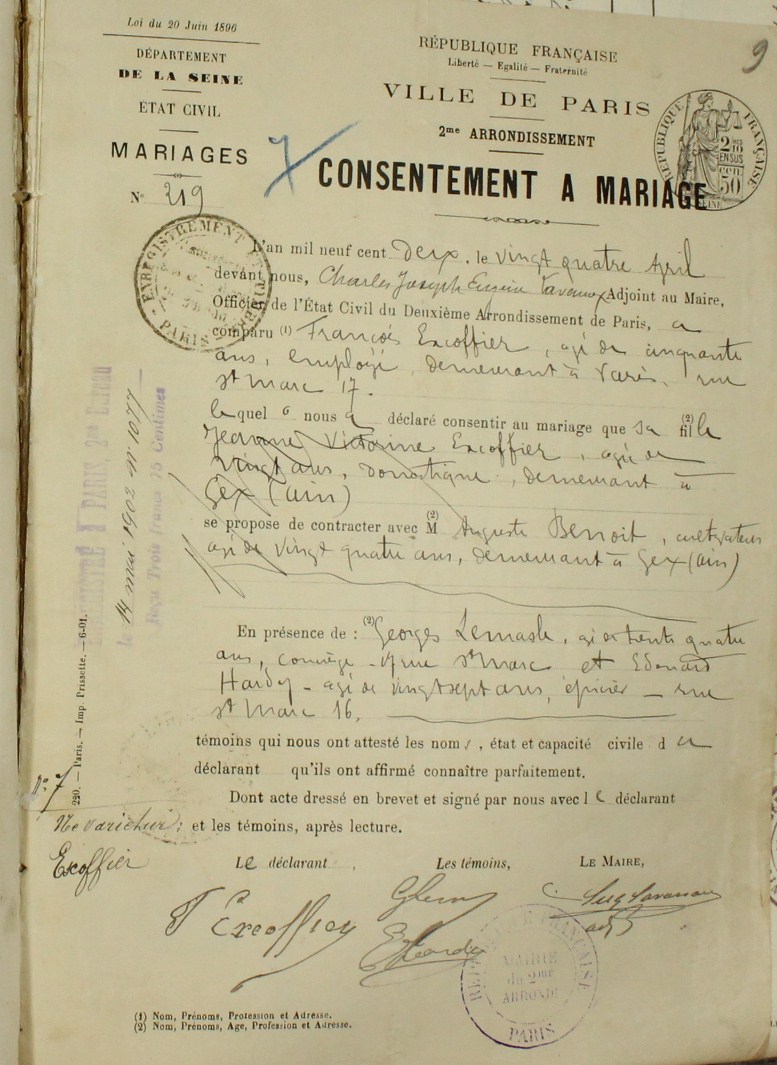 Loi du 20 Juin 1896
DÉPARTEMENT
DE LA SEINE
ETAT CIVIL
MARIAGES
N° 219
RÉPUBLIQUE FRANÇAISE
Liberté — Egalité — Fraternité
VILLE DE PARIS
2me ARRONDISSEMENT
9
RÉPUBLIQUE FRANÇAISE
7
CONSENTEMENT A MARIAGE
L'an mil neuf cent deux, le vingt quatre Avril
devant nous, Charles Joseph Eugène Adjoint au Maire,
Officier de l'État Civil du Deuxième Arrondissement de Paris, a
comparu (1) François Excoffier, agé de cinquante
ans, employé, demeurant à Paris, rue
St Marc 17.
lequel nous a déclaré consentir au mariage que sa (2) fille
Jeanne Victorine Excoffier, agée de
vingt ans, domestique, demeurant à
Gex (Ain)
se propose de contracter avec (2) M Auguste Benoit, cultivateur
agé de vingt quatre ans, demeurant à Gex (Ain)
En présence de : (2) Georges agé de trente quatre
ans, concierge rue St Marc et Edouard
Hardy - agé de vingt sept ans, épicier - rue
St Marc 16.
témoins qui nous ont attesté les noms, état et capacité civile du
déclarant qu'ils ont affirmé connaître parfaitement.
Dont acte dressé en brevet et signé par nous avec le déclarant
et les témoins, après lecture.
Le déclarant, Les témoins, LE MAIRE,
F Excoffier
E Hardy
(1) Nom, Prénoms, Profession et Adresse.
(2) Nom, Prénoms, Age, Profession et Adresse.
ENREGISTRÉ A PARIS, 2me
le 14 mai 1902 n° 1077
Reçu Trois francs 75 Centimes
220. — Paris. — Imp. Prissette. — 6-01.
N° 7
Ne varietur :
Excoffier
RÉPUBLIQUE FRANÇAISE
MAIRIE
du 2me
ARRONDt
PARIS